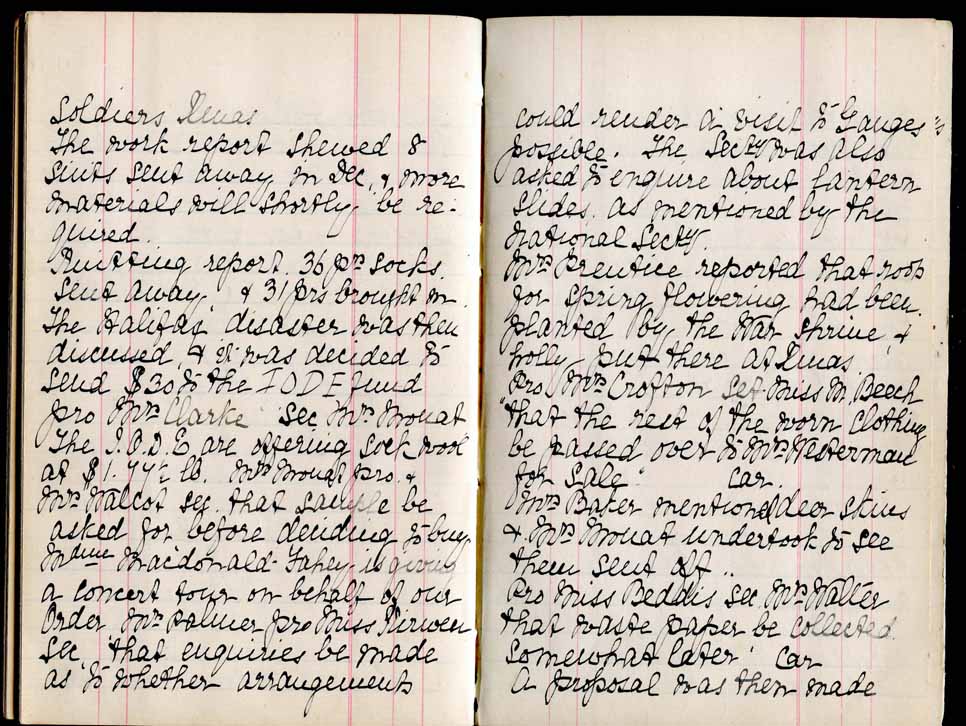 Soldiers Xmas
The work report shewed 8
suits sent away in Dec, & more
materials will shortly be re-
quired.
Knitting report. 36 prs socks
sent away & 31 prs brought in.
The Halifax disaster was then
discussed, & it was decided to
send $30 to the IODE fund
pro Mrs Clarke sec Mrs Mouat
The I.O.D.E are offering sock wool
at $1.77½ lb. Mrs Mouat pro. &
Mrs Walcot sec. that sample be
asked for before deciding to buy.
Mdme Macdonald-Fahey is giving
a concert tour on behalf of our
Order Mrs Palmer pro Miss
sec. "that enquiries be made
as to whether arrangements
could render a visit to Ganges
possible. The Secty was also
asked to enquire about lantern
slides. as mentioned by the
National Secty.
Mrs Prentice reported that roots
for spring flowering had been
planted by the War shrine, &
holly put there at Xmas.
Pro Mrs Crofton sec Miss M. Beech
"that the rest of the worn clothing
be passed over to Mrs Westerman
for sale" car.
Mrs Baker mentioned deer skins
& Mrs Mouat undertook to see
them sent off..
Pro Miss Beddis sec Mrs Walter
that waste paper be collected
somewhat later" car
A proposal was then made